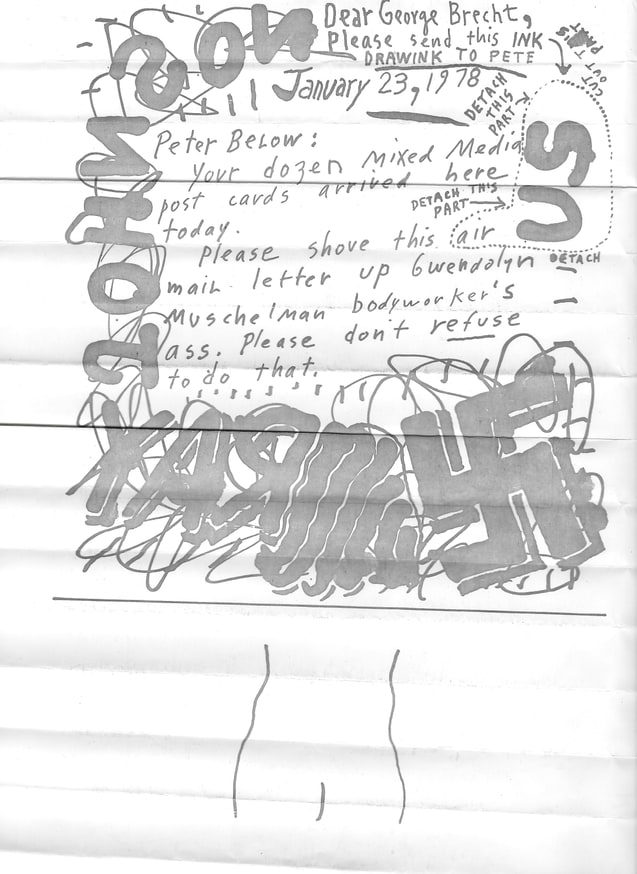 Dear George Brecht,
Please send this INK
DRAWINK TO PETE
CUT OUT THIS PART
JOHNSON
January 23, 1978
DETACH THIS PART
US
Peter Below:
Your dozen mixed Media
post cards arrived here
today.
DETACH THIS PART
Please shove this air
DETACH
mail letter up Gwendolyn
Muschelman bodyworker's
ass. Please don't refuse
to do that.